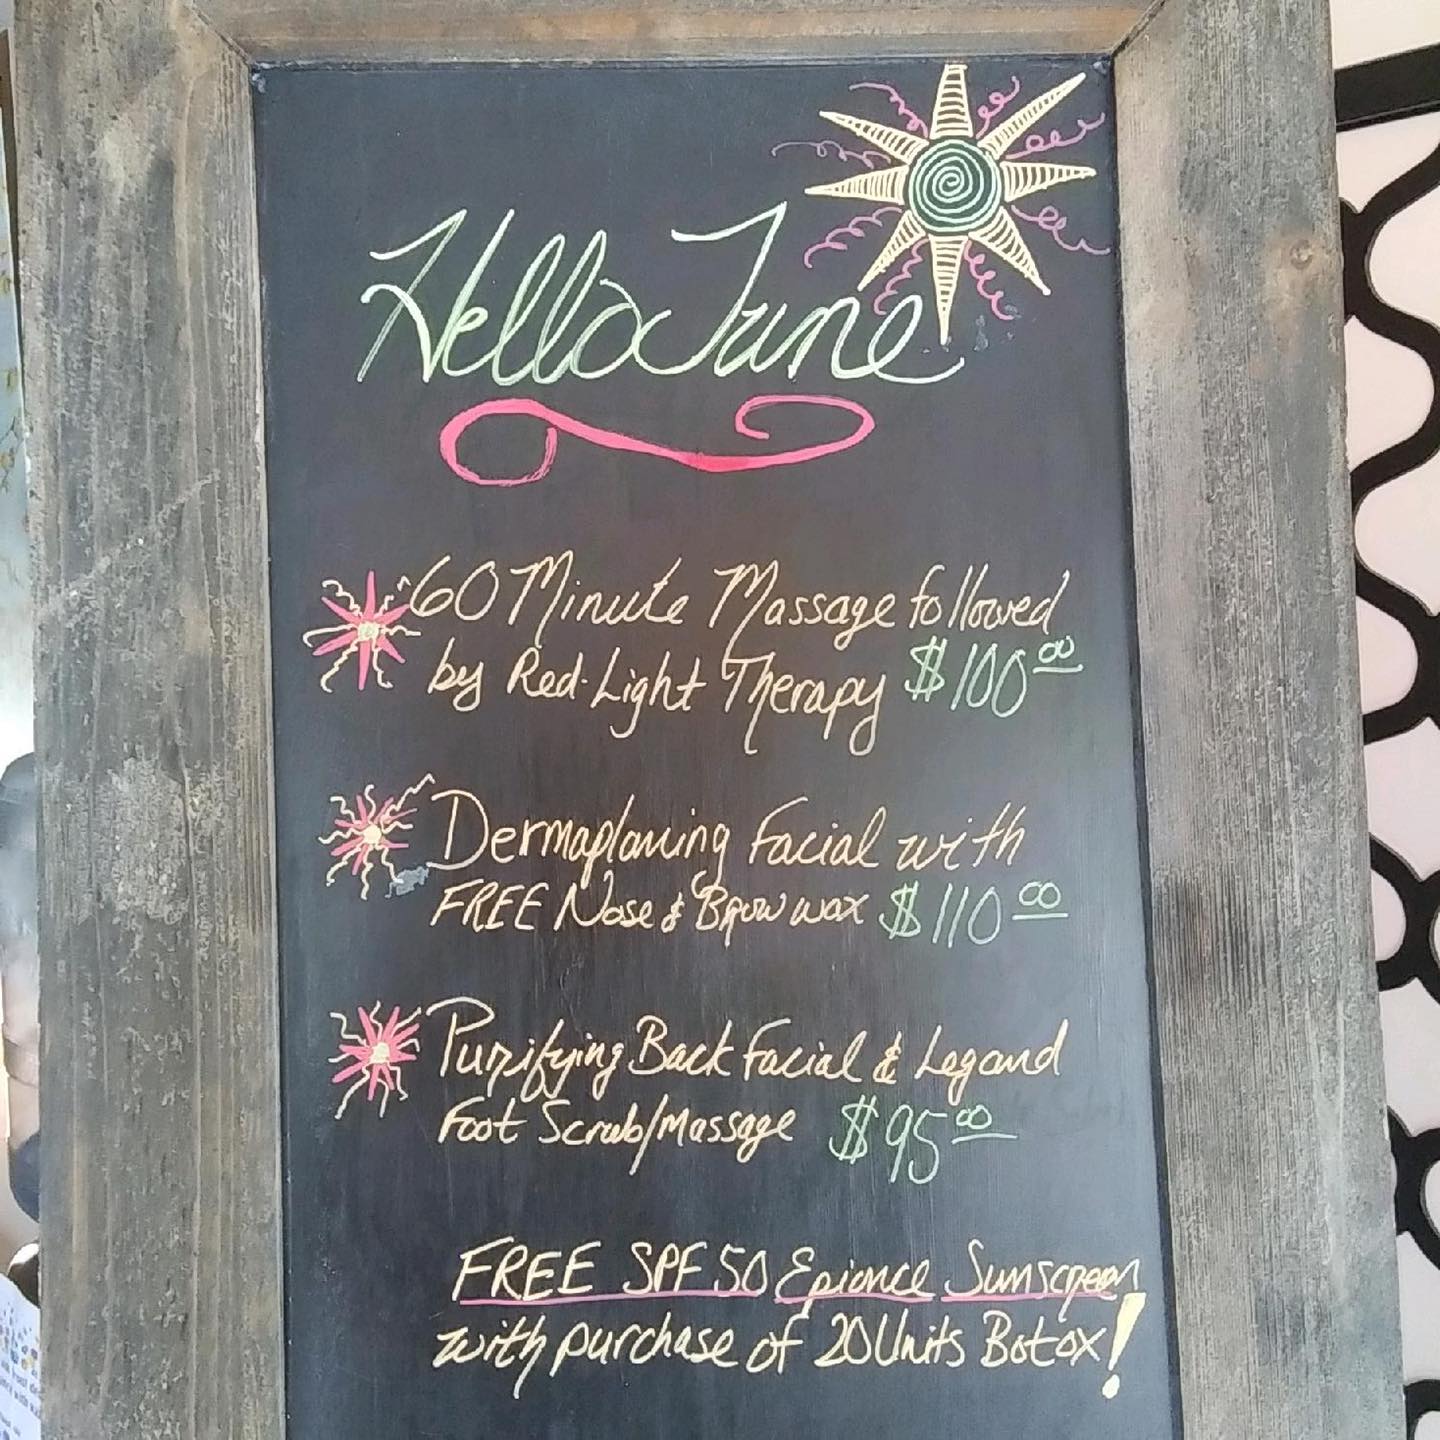 Hello June
60 Minute Massage followed
by Red-Light Therapy $100.00
Dermaplaning Facial with
FREE Nose & Brow wax $110.00
Purifying Back Facial & Leg and
Foot Scrub/Massage $95.00
FREE SPF 50 Epionce Sunscreen
with purchase of 20 Units Botox!